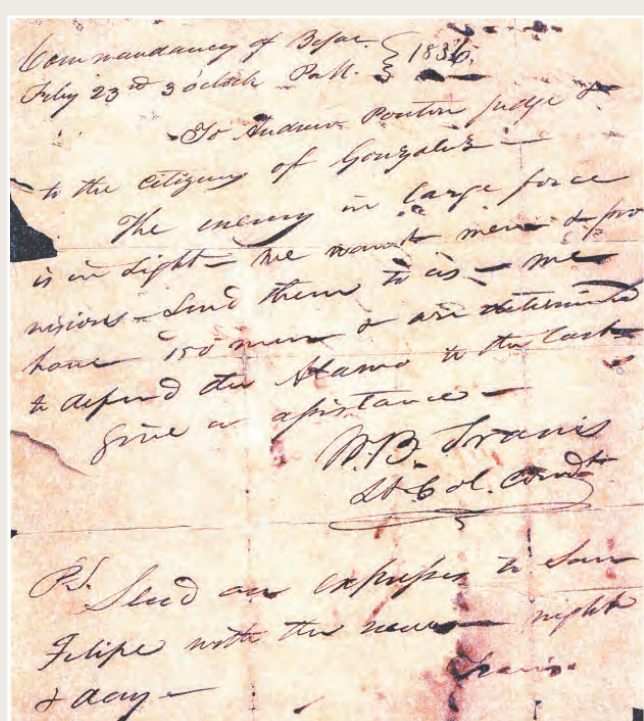 Commandancy of Bejar } 1836.
Feby 23rd 3 o'clock P.M.
To Andrew Ponton judge &
to the citizens of Gonzales —
The enemy in large force
is in sight — We want men & pro
visions — Send them to us — We
have 150 men & are determined
to defend the Alamo to the last
Give us assistance —
W. B. Travis
Lt. Col. Comdt
P.S. Send an express to San
Felipe with the news — night
& day —
Travis